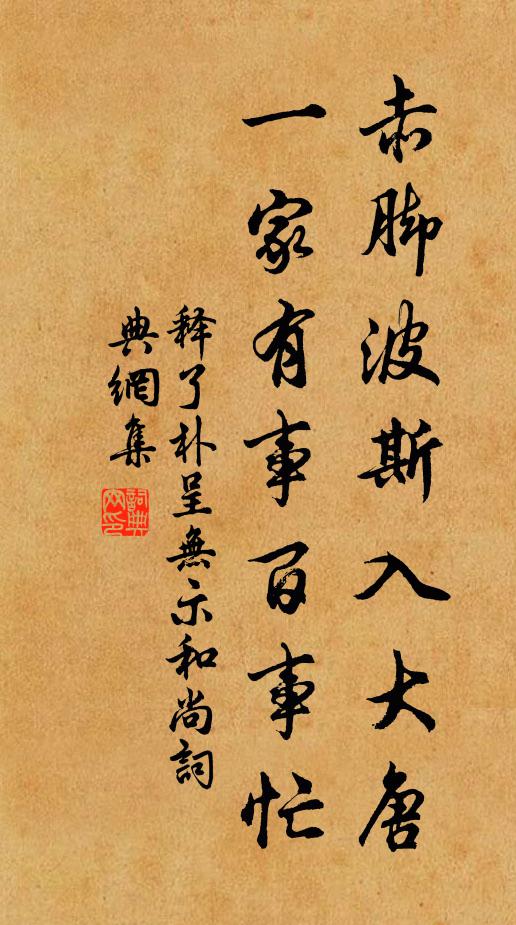 赤脚波斯入大唐
一家有事百事忙
释了朴呈無示和尚詞
典網集
詞典網印